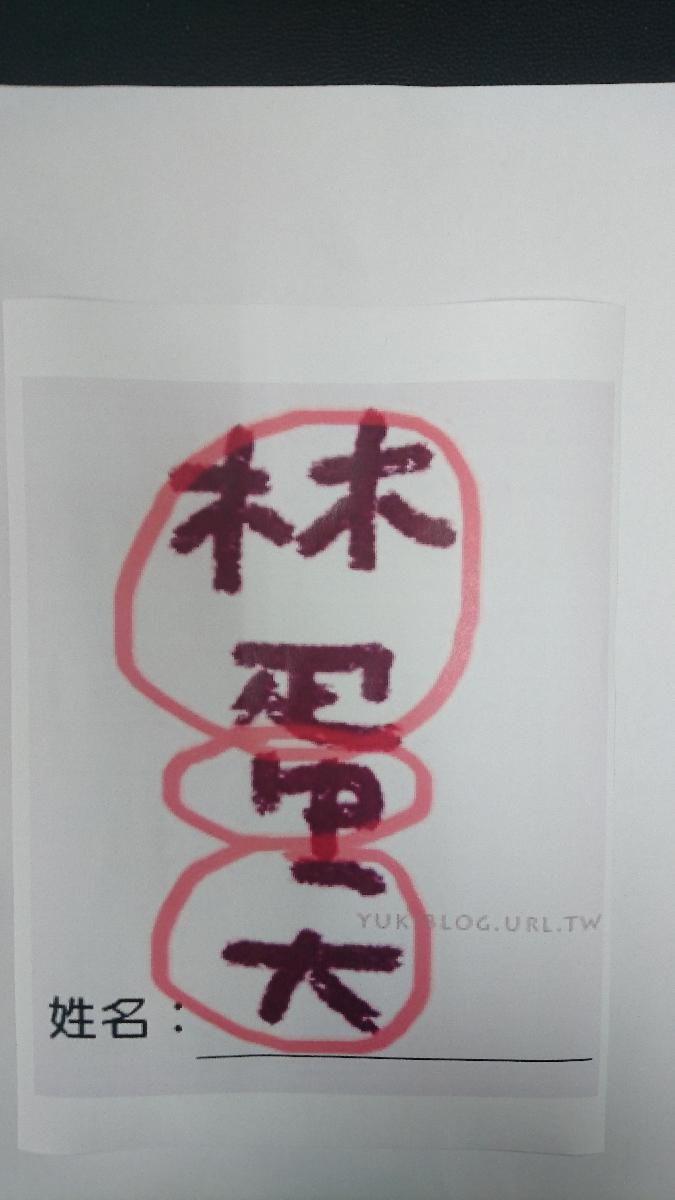 楚中天
YUKIBLOG.URL.TW
姓名：